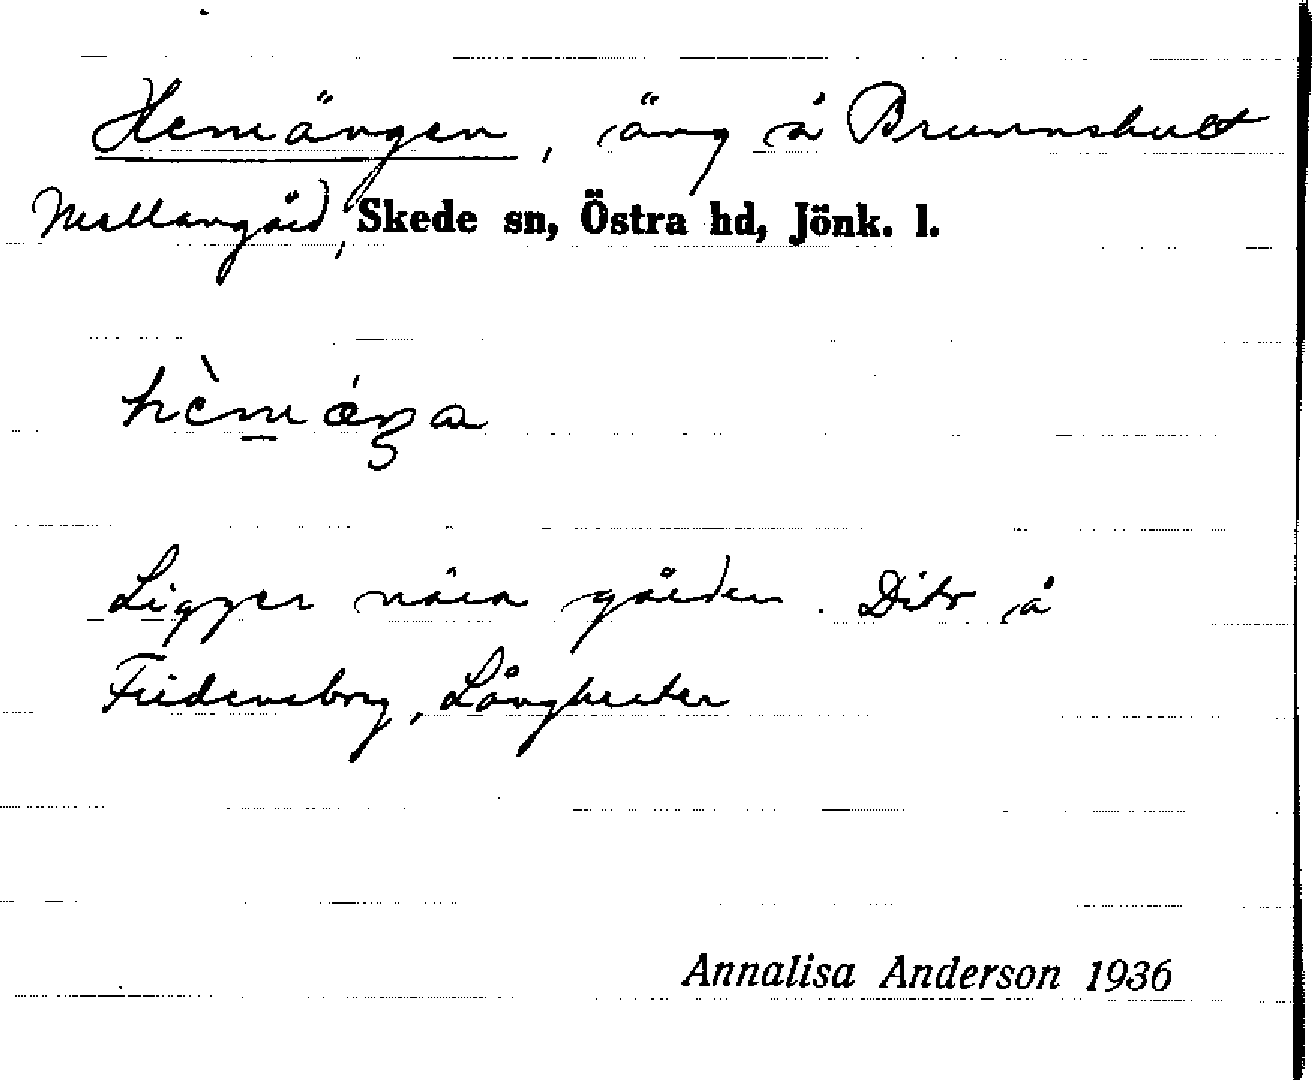 Hemängen, äng å Brunnshult
Mellangård, Skede sn, Östra hd, Jönk. l.
hèmǽŋa
Ligger nära gården. Dito å
Fridensborg, Långhester
Annalisa Anderson 1936